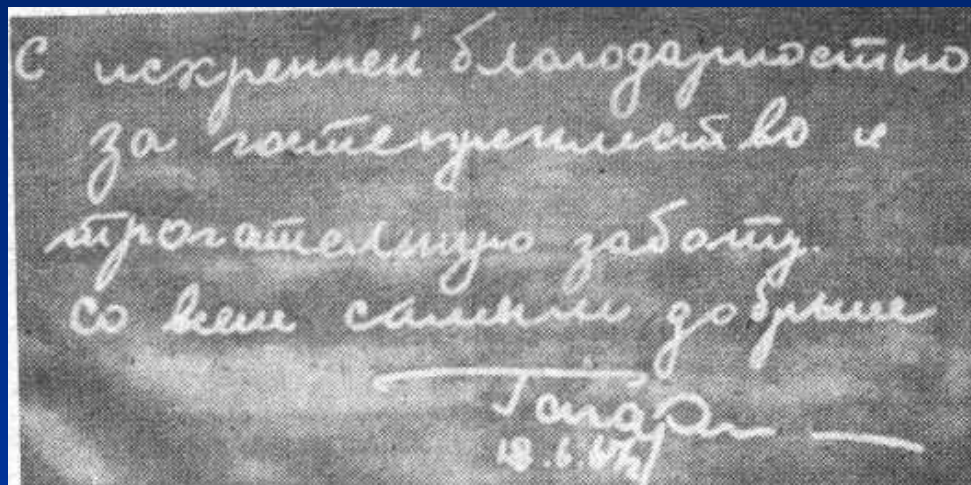 С искренней благодарностью
за гостеприимство и
трогательную заботу.
Со всем самым добрым
Гагар